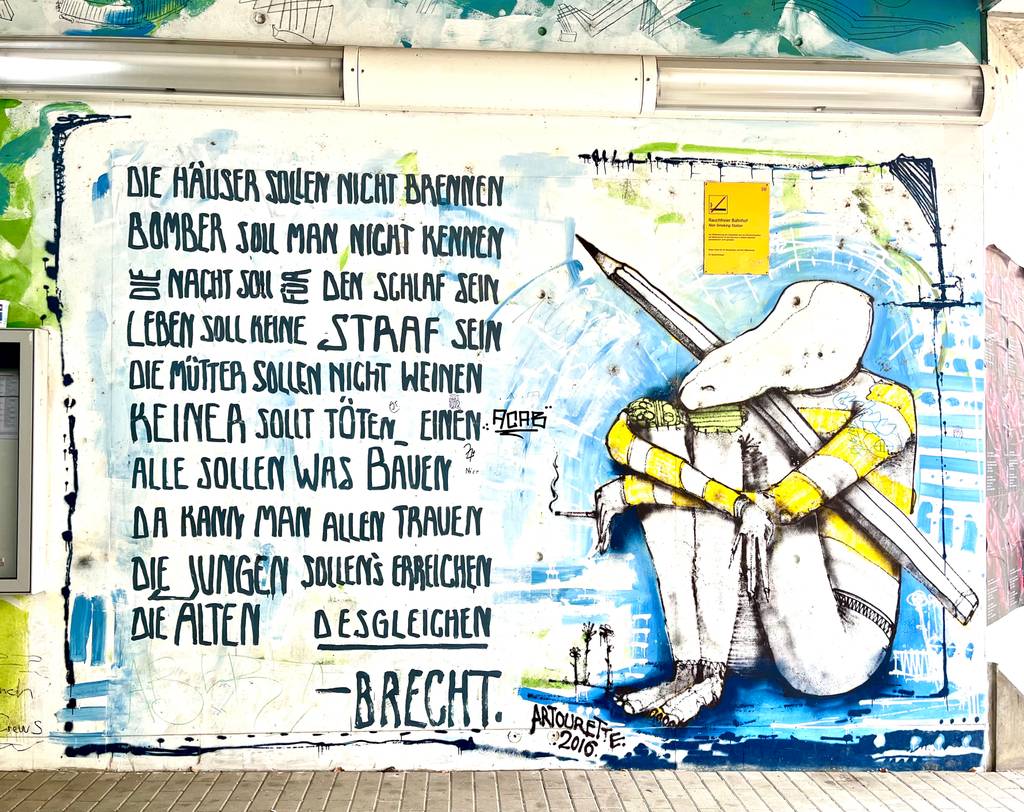 DIE HÄUSER SOLLEN NICHT BRENNEN
BOMBER SOLL MAN NICHT KENNEN
DIE NACHT SOLL FÜR DEN SCHLAF SEIN
LEBEN SOLL KEINE STRAF SEIN
DIE MÜTTER SOLLEN NICHT WEINEN
KEINER SOLLT TÖTEN EINEN
ACAB
ALLE SOLLEN WAS BAUEN
DA KANN MAN ALLEN TRAUEN
DIE JUNGEN SOLLEN'S ERREICHEN
DIE ALTEN DESGLEICHEN
—BRECHT.
ARTOURETTE.
2016
Rauchfreier Bahnhof
Non Smoking Station
Crews